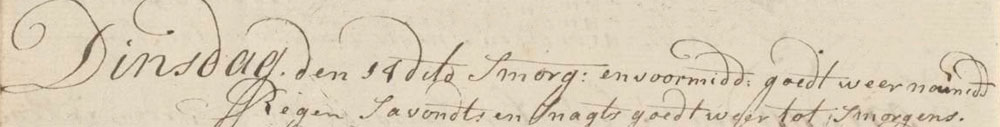 Dinsdag. den 18 dito Smorg: en voormidd: goedt weer namidd
Regen Savondts en Snagts goedt weer tot, Smorgens.